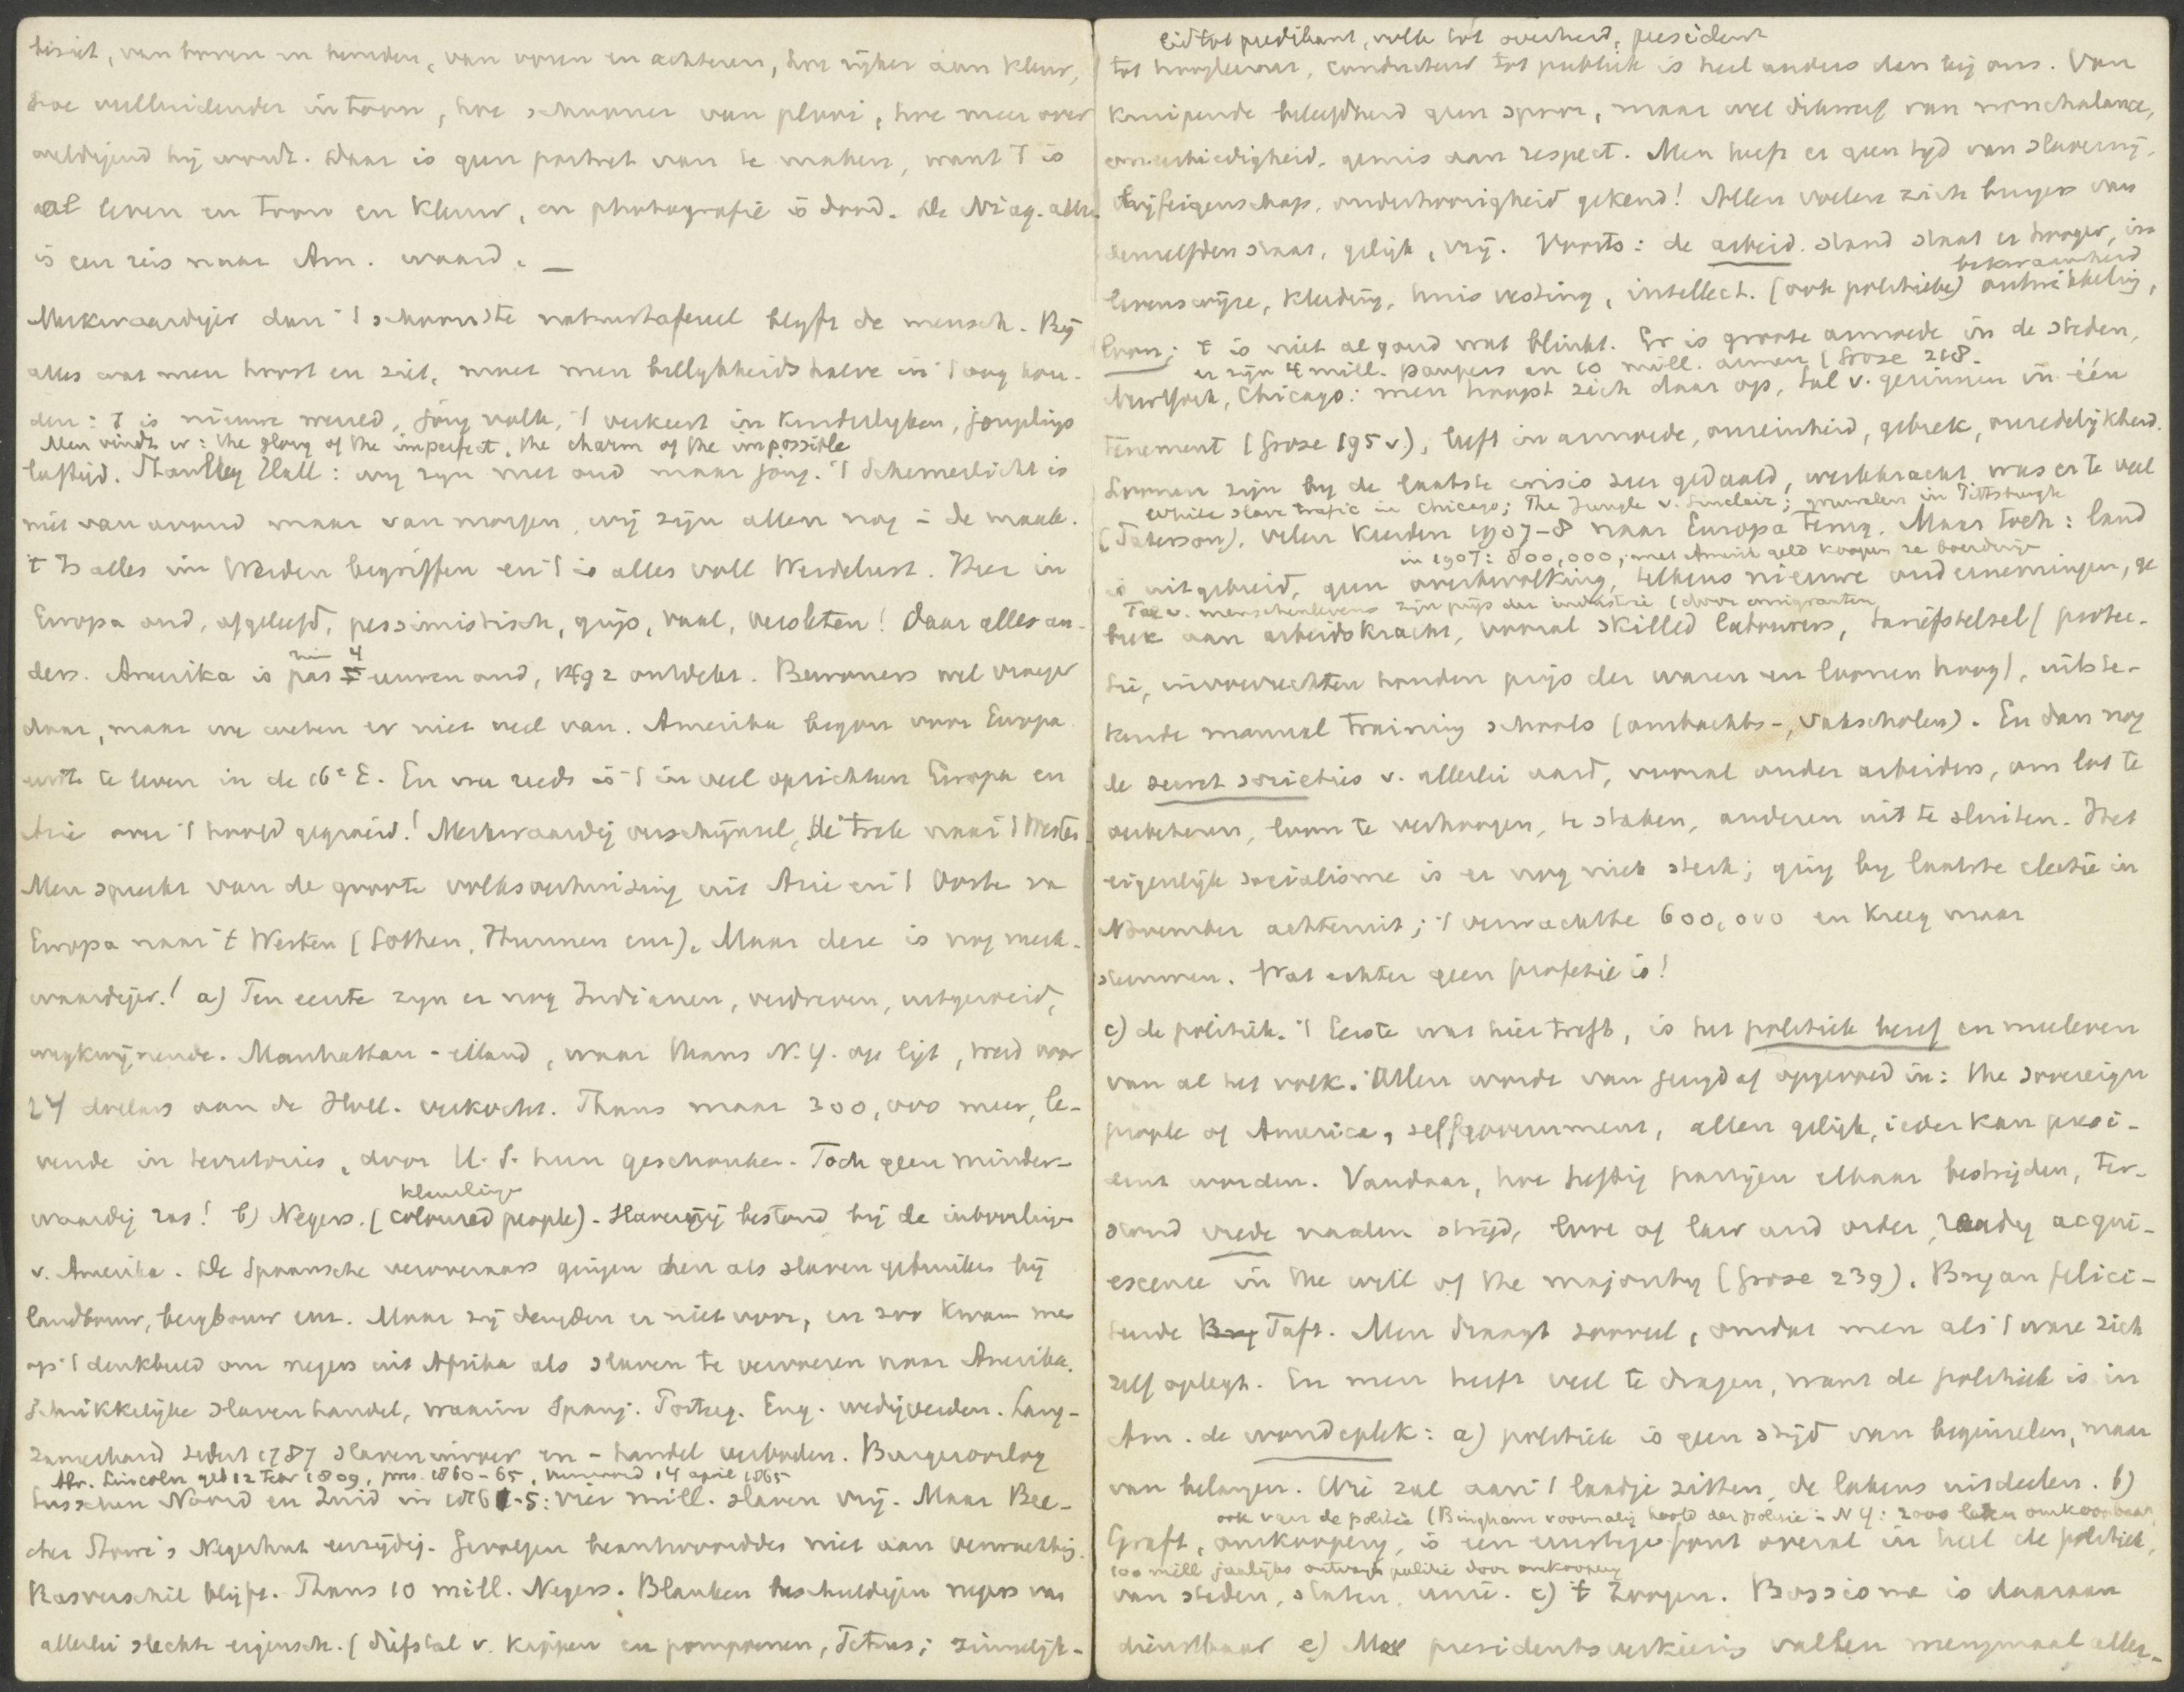 beziet, van boven en beneden, van voren en achteren, hoe rijker aan kleur,
hoe welluidender in toon, hoe schooner van plooi, hoe meer over
weldigend hij wordt. Daar is geen portret van te maken, want 't is
al leven en toon en kleur, en photografie is dood. De Niag. alleen
is een reis naar Am. waard. —
Merkwaardiger dan 't schoonste natuurtafereel blijft de mensch. Bij
alles wat men hoort en ziet, moet men billijkheidshalve in 't oog hou-
den: 't is nieuwe wereld, jong volk, 't verkeert in kinderlijken, jongelings
Men vindt er: the glory of the imperfect, the charm of the impossible
leeftijd. Stanley Hall: wij zijn niet oud maar jong. 't Schemerlicht is
niet van avond maar van morgen, wij zijn allen nog in de maak.
't Is alles im Werden begriffen en 't is alles voll Werdelust. Hier in
Europa oud, afgeleefd, pessimistisch, grijs, vaal, versleten! Daar alles an-
ders. Amerika is pas ruim 4 eeuwen oud, 1492 ontdekt. Bewoners wel vroeger
daar, maar we weten er niet veel van. Amerika begon voor Europa
eerst te leven in de 16e E. En nu reeds is 't in veel opzichten Europa en
Azie over 't hoofd gegroeid! Merkwaardig verschijnsel, de trek naar 't Westen
Men spreekt van de groote volksverhuizing uit Azie en 't Oosten van
Europa naar 't Westen (Gothen, Hunnen enz). Maar deze is nog merk-
waardiger! a) Ten eerste zijn er nog Indianen, verdreven, uitgeroeid,
wegkwijnende. Manhattan-eiland, waar thans N.Y. op ligt, werd voor
24 dollars aan de Holl. verkocht. Thans maar 300,000 meer, le-
vende in territories, door U.S. hun geschonken. Toch geen minder-
kleurlingen
waardig ras! b) Negers. (coloured people). Slavernij bestond bij de inboorlingen
v. Amerika. De Spaansche veroveraars gingen dezen als slaven gebruiken bij
landbouw, bergbouw enz. Maar zij deugden er niet voor, en zoo kwam men
op 't denkbeeld om negers uit Afrika als slaven te vervoeren naar Amerika.
Schrikkelijke slavenhandel, waarin Spanj. Portug. Eng. wedijverden. Lang-
zamerhand sedert 1787 slaveninvoer en -handel verboden. Burgeroorlog
Abr. Lincoln geb 12 Febr 1809, pres. 1860-65, vermoord 14 april 1865
tusschen Noord en Zuid in 1861-5: vier mill. slaven vrij. Maar Bee-
cher Stowe's Negerhut eenzijdig. Gevolgen beantwoordden niet aan verwachting.
Rasverschil blijft. Thans 10 mill. Negers. Blanken beschuldigen negers van
allerlei slechte eigensch. (diefstal v. kippen en pompoenen, Tetnus; zinnelijk-
lid tot predikant, volk tot overheid, president
tot hoogleeraar, conducteur tot publiek is heel anders dan bij ons. Van
kruipende beleefdheid geen spoor, maar wel dikwerf van nonchalance,
oneerbiedigheid, gemis aan respect. Men heeft er geen tijd van slavernij,
lijfeigenschap, onderhoorigheid gekend! Allen voelen zich burgers van
denzelfden staat, gelijk, vrij. Voorts: de arbeid. stand staat er hooger, in
bekwaamheid
levenswijze, kleding, huisvesting, intellect. (ook politieke) ontwikkeling,
loon; 't is niet al goud wat blinkt. Er is groote armoede in de steden,
er zijn 4 mill. paupers en 10 mill. armen (Grose 218.
NewYork, Chicago: men hoopt zich daar op, tal v. gezinnen in één
tenement (Grose 195 v.), leeft in armoede, onreinheid, gebrek, onzedelijkheid.
Loonen zijn bij de laatste crisis zeer gedaald, werkkracht was er te veel
White slave trafic in Chicago; The Jungle v. Sinclair; gruwelen in Pittsburgh
(Paterson), velen keerden 1907-8 naar Europa terug. Maar toch: land
in 1907: 800,000, met Amerik geld koopen ze boerderijen
is uitgebreid, geen overbevolking, telkens nieuwe ondernemingen, ge
Tal v. menschenlevens zijn prijs der industrie (door emigranten
brek aan arbeidskracht, vooral skilled labourers, tariefstelsel (protec-
tie, invoerrechten houden prijs der waren en loonen hoog), uitste-
kende manual training schools (ambachts-, vakscholen). En dan nog
de secret societies v. allerlei aard, vooral onder arbeiders, om lot te
verbeteren, loon te verhoogen, te staken, anderen uit te sluiten. Het
eigenlijke socialisme is er nog niet sterk; ging bij laatste electie in
November achteruit; 't verwachtte 600,000 en kreeg maar
stemmen. Wat echter geen profetie is!
c) de politiek. 't Eerste wat hier treft, is het politiek besef en meeleven
van al het volk. Allen worden van jeugd af opgevoed in: the sovereign
people of America, selfgovernment, allen gelijk, ieder kan presi-
dent worden. Vandaar, hoe heftig partijen elkaar bestrijden, ter-
stond vrede na den strijd, love of law and order, ready acqui-
escence in the will of the majority (Grose 239). Bryan felici-
teerde Taft. Men draagt zooveel, omdat men als 't ware zich
zelf oplegt. En men heeft veel te dragen, want de politiek is in
Am. de wondeplek: a) politiek is geen strijd van beginselen, maar
van belangen. Wie zal aan 't laadje zitten, de lakens uitdeelen. b)
ook van de politie (Bingham voormalig hoofd der politie in NY: 2000 leden omkoopbaar,
Graft, omkooperij, is een ernstige fout overal in heel de politiek,
100 mill jaarlijks ontvangt politie door omkooperij
van steden, staten, unie. c) 't Zwagen. Bossisme is daaraan
dienstbaar e) Met presidentsverkiezing vallen menigmaal aller-